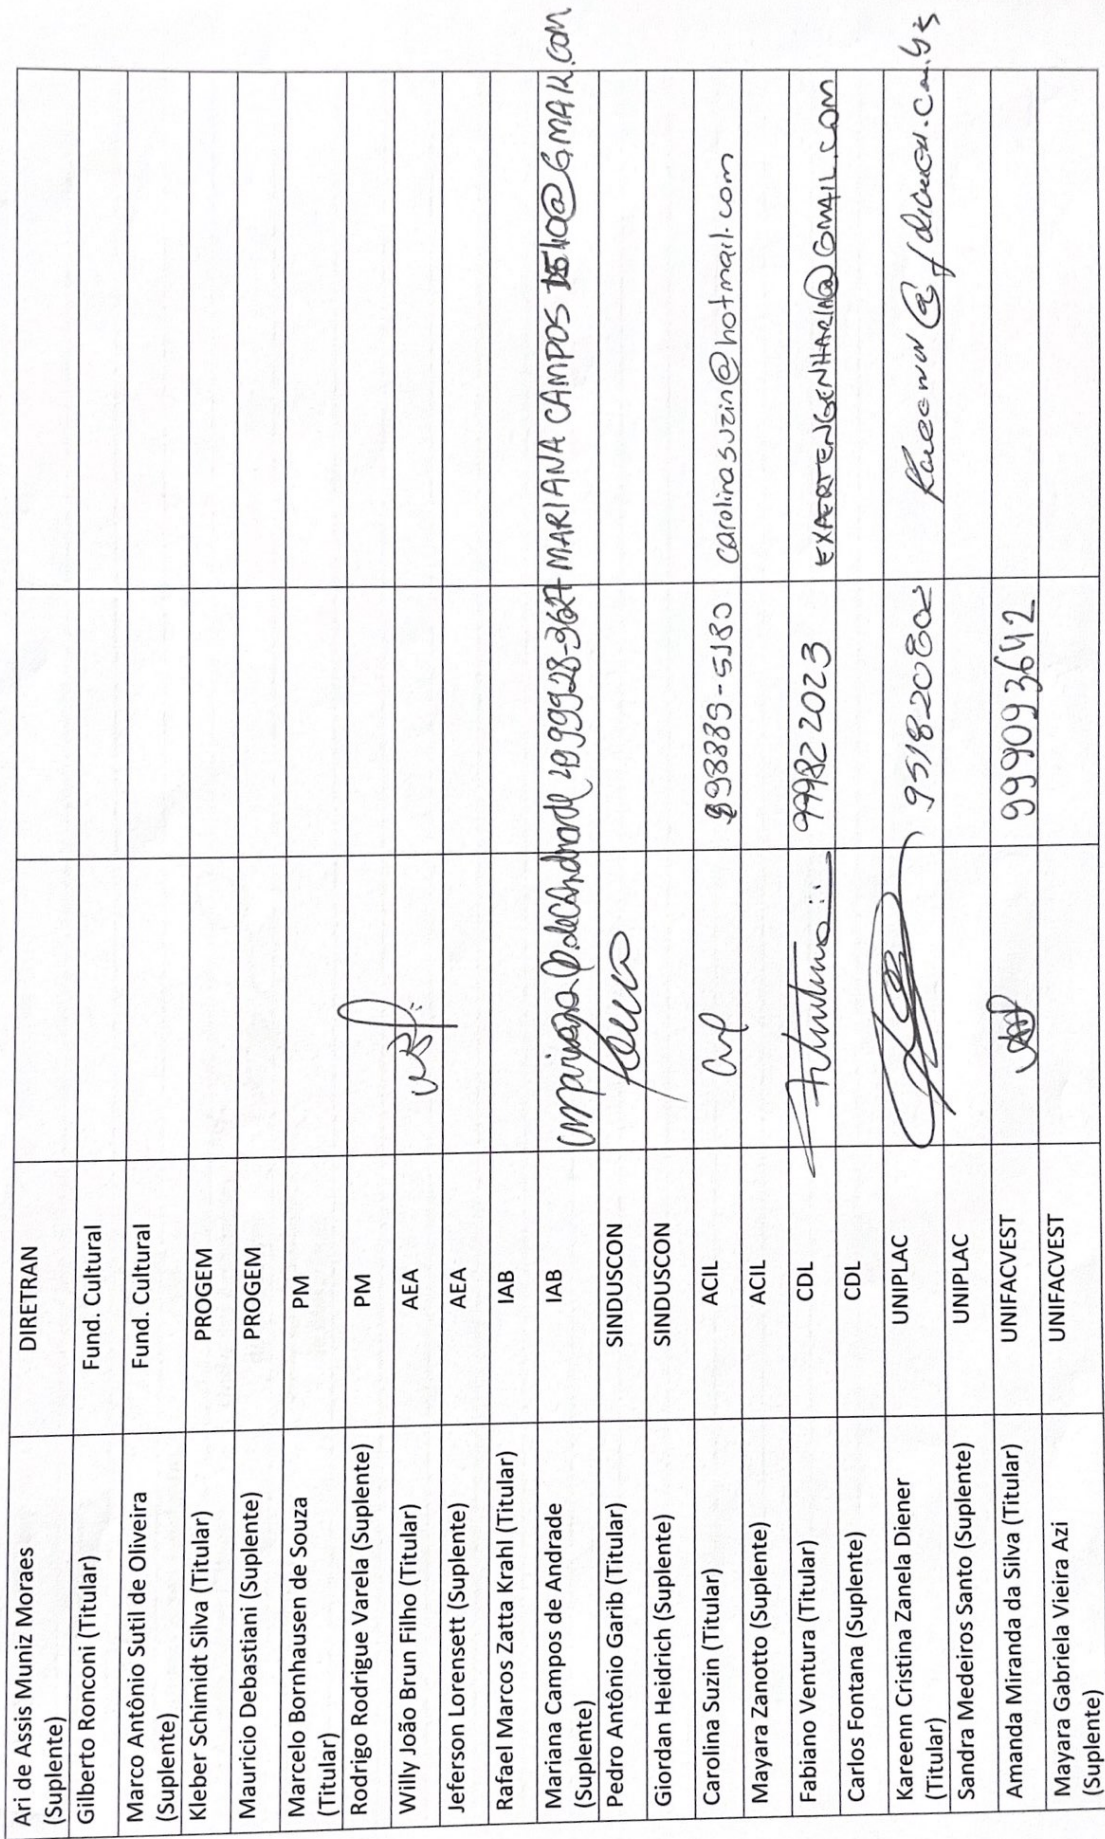 Ari de Assis Muniz Moraes
(Suplente)
DIRETRAN
Gilberto Ronconi (Titular)
Fund. Cultural
Marco Antônio Sutil de Oliveira
(Suplente)
Fund. Cultural
Kleber Schimidt Silva (Titular)
PROGEM
Mauricio Debastiani (Suplente)
PROGEM
Marcelo Bornhausen de Souza
(Titular)
PM
Rodrigo Rodrigue Varela (Suplente)
PM
Willy João Brun Filho (Titular)
AEA
Jeferson Lorensett (Suplente)
AEA
Rafael Marcos Zatta Krahl (Titular)
IAB
Mariana Campos de Andrade
(Suplente)
IAB
Mariana C. de Andrade 49 99928-3627 MARIANA CAMPOS @GMAIL.COM
Pedro Antônio Garib (Titular)
SINDUSCON
Giordan Heidrich (Suplente)
SINDUSCON
Carolina Suzin (Titular)
ACIL
98889-5180 carolinasuzin@hotmail.com
Mayara Zanotto (Suplente)
ACIL
Fabiano Ventura (Titular)
CDL
99982 2023 EXPERTENGENHARIA@GMAIL.COM
Carlos Fontana (Suplente)
CDL
Kareenn Cristina Zanela Diener
(Titular)
UNIPLAC
Sandra Medeiros Santo (Suplente)
UNIPLAC
Amanda Miranda da Silva (Titular)
UNIFACVEST
999093642
Mayara Gabriela Vieira Azi
(Suplente)
UNIFACVEST